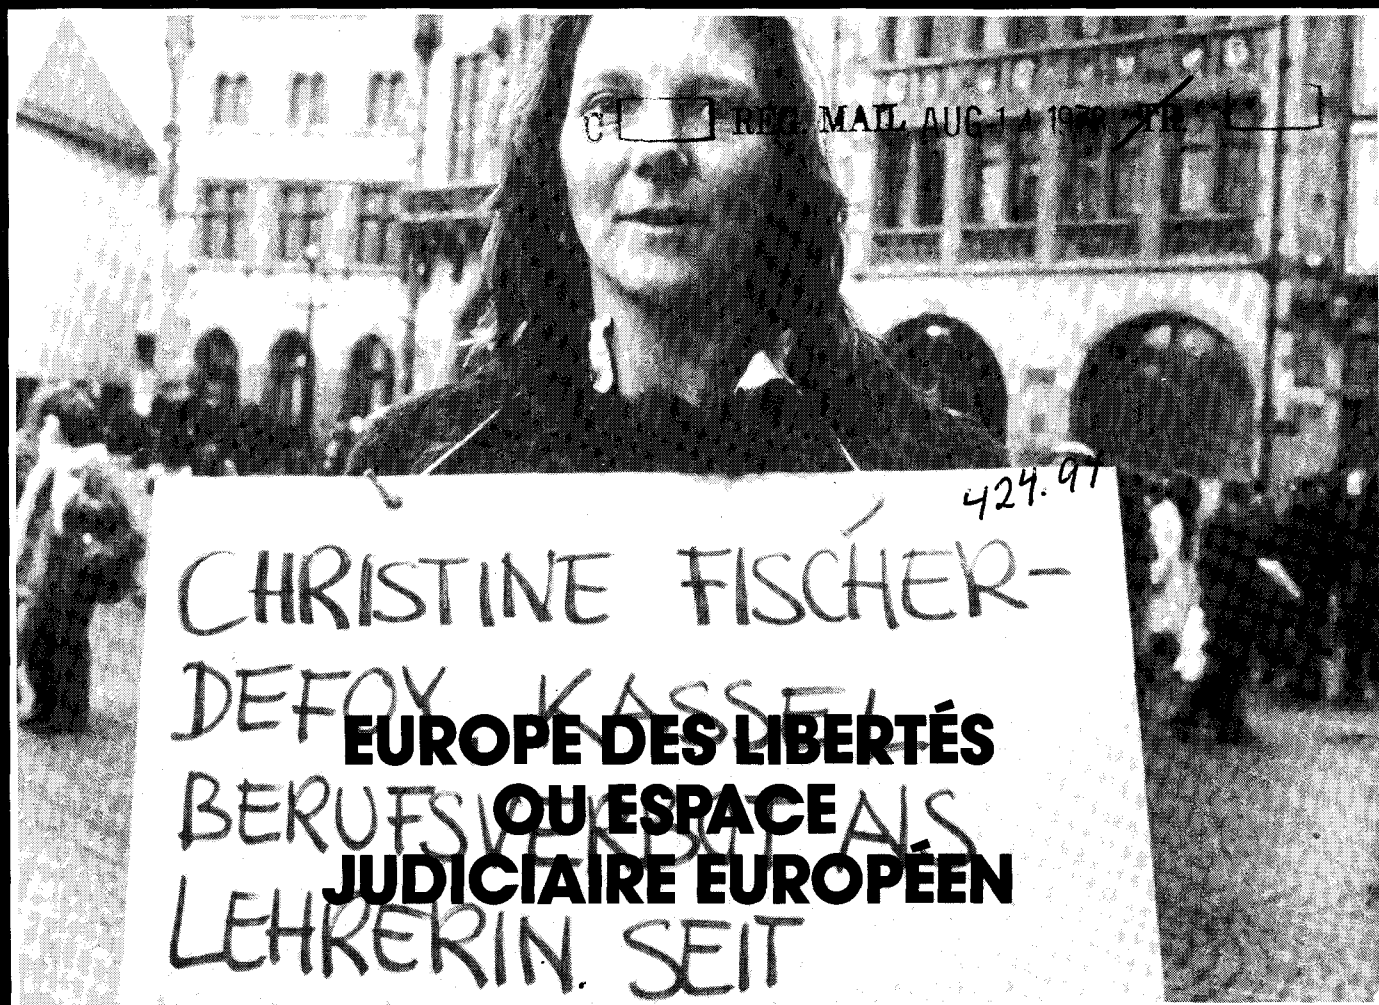 C REG. MAIL AUG 14 1979 TR.
424.97
CHRISTINE FISCHER-
DEFOY KASSEL
BERUFSVERBOT ALS
LEHRERIN. SEIT
EUROPE DES LIBERTÉS
OU ESPACE
JUDICIAIRE EUROPÉEN